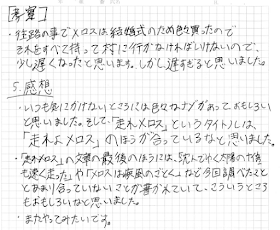 [考察]
・往路の事でメロスは結婚式のため色々買ったので
それをすべて持って村に行かなければいけないので、
少し遅くなったと思います。しかし遅すぎると思いました。
5.感想
・いつも気にかけないところには色々なナゾがあっておもしろい
と思いました。そして、「走れメロス」というタイトルは、
「走れよメロス」のほうが合っているなと思いました。
・「走れメロス」の文章の最後のほうには、沈んでゆく太陽の十倍
も速く走った」や「メロスは疾風のごとく」など今回調べたこと
とあまり合っていないことが書かれていて、こういうところ
もおもしろいなと思いました。
・またやってみたいです。